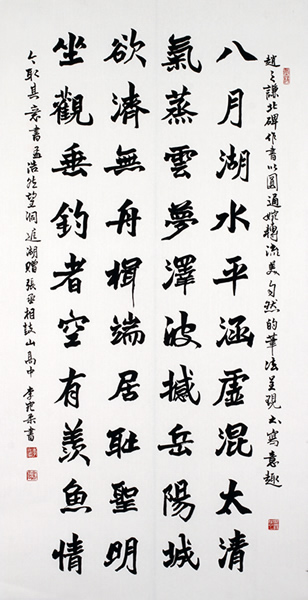 趙之謙北碑作書以圓通婉轉流美自然的筆法呈現寫意趣
八月湖水平涵虛混太清
氣蒸雲夢澤波撼岳陽城
欲濟無舟楫端居耻聖明
坐觀垂釣者空有羨魚情
今取其意書孟浩然望洞庭湖贈張丞相山高中李書